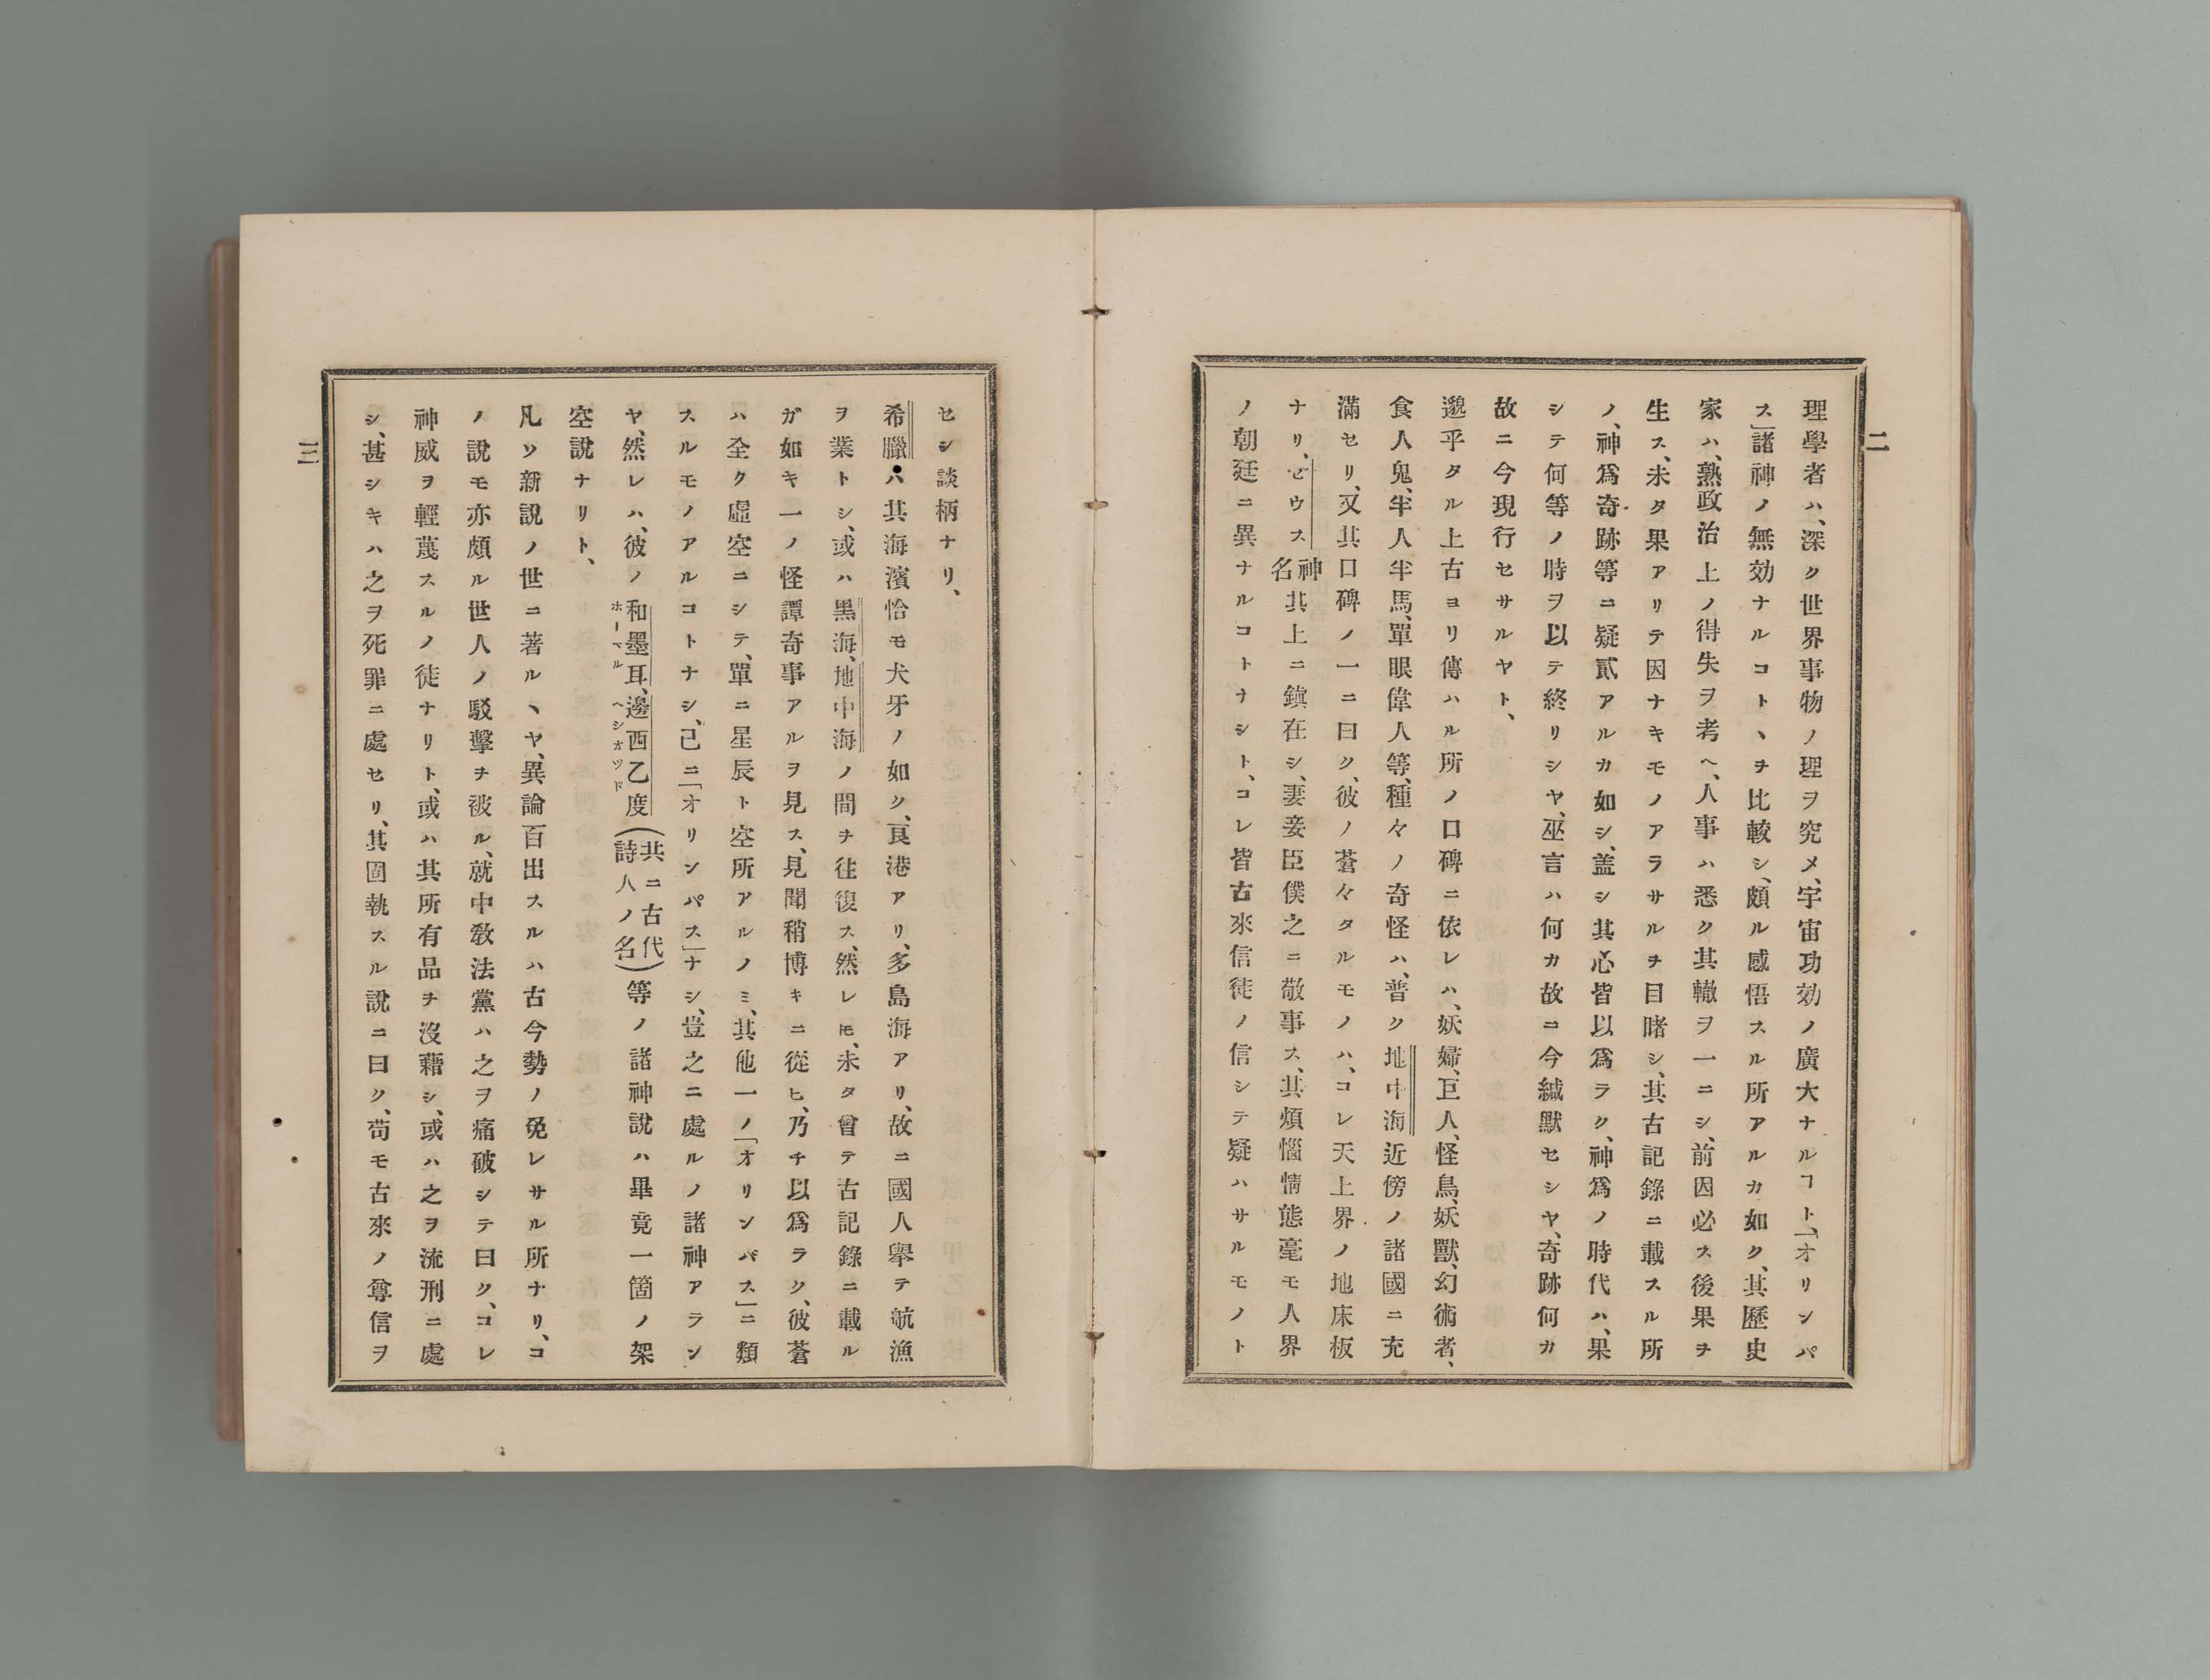 二
理學者ハ、深ク世界事物ノ理ヲ究メ、宇宙功効ノ廣大ナルコト、「オリンパ
ス」諸神ノ無効ナルコトヽヲ比較シ、頗ル感悟スル所アルカ如ク、其歷史
家ハ、熟政治上ノ得失ヲ考ヘ、人事ハ悉ク其轍ヲ一ニシ、前因必ス後果ヲ
生ス、未タ果アリテ因ナキモノアラサルヲ目睹シ、其古記錄ニ載スル所
ノ、神爲奇跡等ニ疑貳アルカ如シ、盖シ其心皆以爲ラク、神爲ノ時代ハ、果
シテ何等ノ時ヲ以テ終リシヤ、巫言ハ何カ故ニ今緘默セシヤ、奇跡何カ
故ニ今現行セサルヤト、
邈乎タル上古ヨリ傳ハル所ノ口碑ニ依レハ、妖婦、巨人、怪鳥、妖獸、幻術者、
食人鬼、半人半馬、單眼偉人等、種々ノ奇怪ハ、普ク地中海近傍ノ諸國ニ充
滿セリ、又其口碑ノ一ニ曰ク、彼ノ蒼々タルモノハ、コレ天上界ノ地床板
ナリ、ゼウス神名其上ニ鎭在シ、妻妾臣僕之ニ敬事ス、其煩惱情態毫モ人界
ノ朝廷ニ異ナルコトナシト、コレ皆古來信徒ノ信シテ疑ハサルモノト
セシ談柄ナリ、
希臘ハ其海濱恰モ犬牙ノ如ク、良港アリ、多島海アリ、故ニ國人擧テ航漁
ヲ業トシ、或ハ黑海、地中海ノ間ヲ往復ス、然レ𪜈、未タ曾テ古記錄ニ載ル
ガ如キ一ノ怪譚奇事アルヲ見ス、見聞稍博キニ從ヒ、乃チ以爲ラク、彼蒼
ハ全ク虛空ニシテ、單ニ星辰ト空所アルノミ、其他一ノ「オリンパス」ニ類
スルモノアルコトナシ、已ニ「オリンパス」ナシ、豈之ニ處ルノ諸神アラン
ヤ、然レハ、彼ノ和墨耳、邊西乙度(共ニ古代詩人ノ名)等ノ諸神說ハ畢竟一箇ノ架
ホーマル ヘシオッド
空說ナリト、
凡ソ新說ノ世ニ著ルヽヤ、異論百出スルハ古今勢ノ免レサル所ナリ、コ
ノ說モ亦頗ル世人ノ駁擊ヲ被ル、就中敎法黨ハ之ヲ痛破シテ曰ク、コレ
神威ヲ輕蔑スルノ徒ナリト、或ハ其所有品ヲ沒藉シ、或ハ之ヲ流刑ニ處
シ、甚シキハ之ヲ死罪ニ處セリ、其固執スル說ニ曰ク、苟モ古來ノ尊信ヲ
三